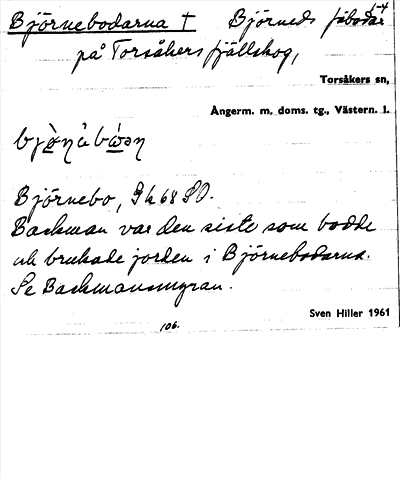 5-4
Björnebodarna † Björneds fäbodar
på Torsåkers fjällskog,
Torsåkers sn,
Ångerm. m. doms. tg., Västern. l.
Björnebo, Gk 68 SO.
Backman var den siste som bodde
och brukade jorden i Björnebodarna.
Se Backmansmyran.
Sven Hiller 1961
106.